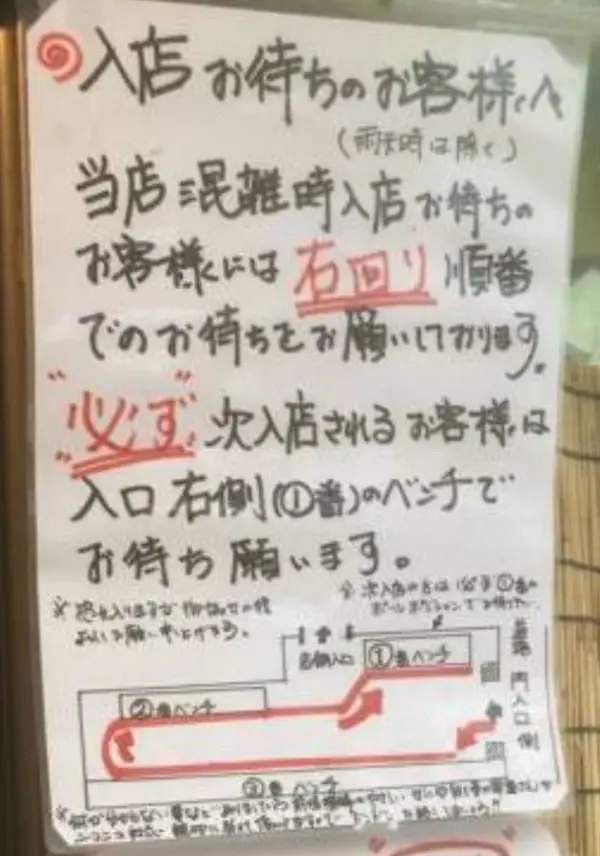 入店お待ちのお客様へ
(雨天時は除く)
当店混雑時入店お待ちの
お客様には右回り順番
でのお待ちをお願いしております。
"必ず"次入店されるお客様は
入口右側(①番)のベンチで
お待ち願います。
※恐れ入りますが
※次入店の方は必ず①番の
お願い申し上げます。
店側入口
①番ベンチ
道路
門入口側
②番ベンチ
③番ベンチ